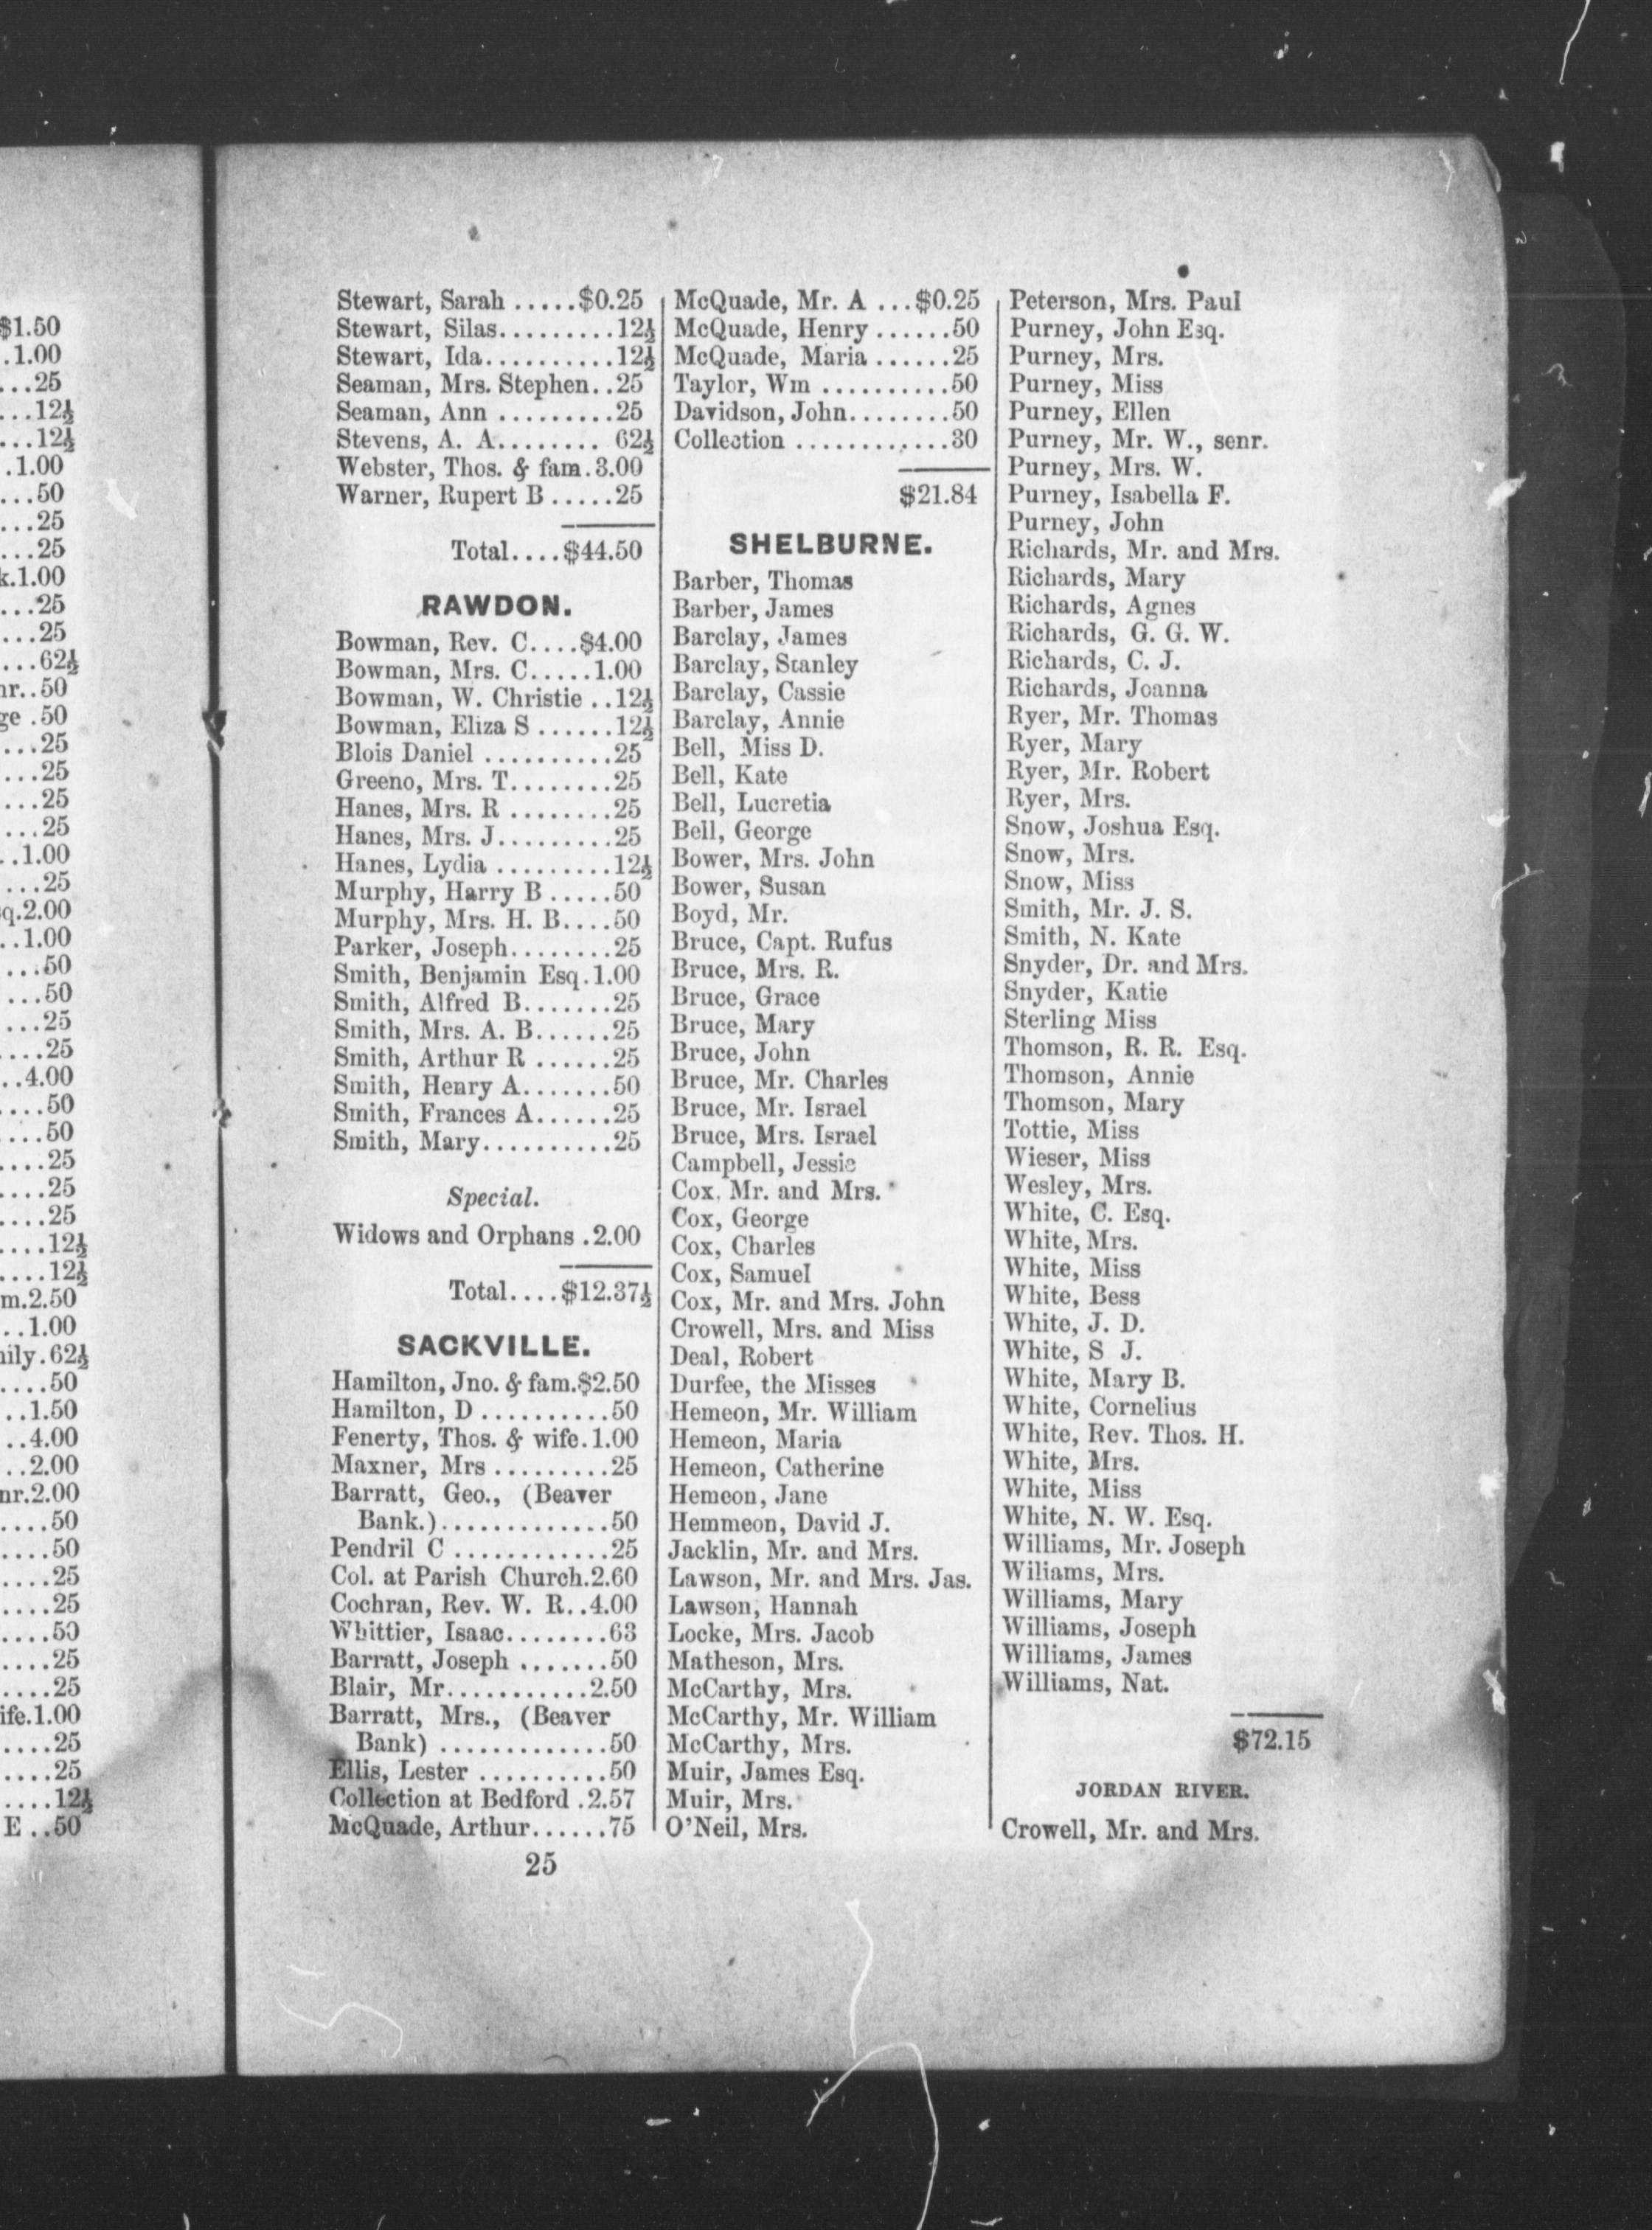 $1.50
.1.00
...25
...12½
...12½
.1.00
...50
...25
...25
k.1.00
...25
...25
...62½
nr..50
ge .50
...25
...25
...25
...25
..1.00
...25
sq.2.00
..1.00
...50
...50
...25
....25
..4.00
....50
....50
....25
....25
....25
....12½
....12½
m.2.50
..1.00
nily.62½
....50
..1.50
..4.00
..2.00
nr.2.00
....50
....50
....25
....25
....50
....25
....25
ife.1.00
....25
....25
....12½
E ..50
Stewart, Sarah .....$0.25
Stewart, Silas..........12½
Stewart, Ida...........12½
Seaman, Mrs. Stephen..25
Seaman, Ann .........25
Stevens, A. A........ 62½
Webster, Thos. & fam.3.00
Warner, Rupert B .....25
Total....$44.50
RAWDON.
Bowman, Rev. C....$4.00
Bowman, Mrs. C.....1.00
Bowman, W. Christie ..12½
Bowman, Eliza S ......12½
Blois Daniel ..........25
Greeno, Mrs. T........25
Hanes, Mrs. R ........25
Hanes, Mrs. J.........25
Hanes, Lydia .........12½
Murphy, Harry B .....50
Murphy, Mrs. H. B....50
Parker, Joseph........25
Smith, Benjamin Esq.1.00
Smith, Alfred B.......25
Smith, Mrs. A. B......25
Smith, Arthur R ......25
Smith, Henry A.......50
Smith, Frances A......25
Smith, Mary..........25
Special.
Widows and Orphans .2.00
Total....$12.37½
SACKVILLE.
Hamilton, Jno. & fam.$2.50
Hamilton, D ..........50
Fenerty, Thos. & wife.1.00
Maxner, Mrs .........25
Barratt, Geo., (Beaver
Bank.).............50
Pendril C ............25
Col. at Parish Church.2.60
Cochran, Rev. W. R..4.00
Whittier, Isaac........63
Barratt, Joseph .......50
Blair, Mr...........2.50
Barratt, Mrs., (Beaver
Bank) .............50
Ellis, Lester ..........50
Collection at Bedford .2.57
McQuade, Arthur......75
25
McQuade, Mr. A ...$0.25
McQuade, Henry ......50
McQuade, Maria ......25
Taylor, Wm ..........50
Davidson, John........50
Collection ............30
$21.84
SHELBURNE.
Barber, Thomas
Barber, James
Barclay, James
Barclay, Stanley
Barclay, Cassie
Barclay, Annie
Bell, Miss D.
Bell, Kate
Bell, Lucretia
Bell, George
Bower, Mrs. John
Bower, Susan
Boyd, Mr.
Bruce, Capt. Rufus
Bruce, Mrs. R.
Bruce, Grace
Bruce, Mary
Bruce, John
Bruce, Mr. Charles
Bruce, Mr. Israel
Bruce, Mrs. Israel
Campbell, Jessie
Cox, Mr. and Mrs.
Cox, George
Cox, Charles
Cox, Samuel
Cox, Mr. and Mrs. John
Crowell, Mrs. and Miss
Deal, Robert
Durfee, the Misses
Hemeon, Mr. William
Hemeon, Maria
Hemeon, Catherine
Hemeon, Jane
Hemmeon, David J.
Jacklin, Mr. and Mrs.
Lawson, Mr. and Mrs. Jas.
Lawson, Hannah
Locke, Mrs. Jacob
Matheson, Mrs.
McCarthy, Mrs.
McCarthy, Mr. William
McCarthy, Mrs.
Muir, James Esq.
Muir, Mrs.
O'Neil, Mrs.
Peterson, Mrs. Paul
Purney, John Esq.
Purney, Mrs.
Purney, Miss
Purney, Ellen
Purney, Mr. W., senr.
Purney, Mrs. W.
Purney, Isabella F.
Purney, John
Richards, Mr. and Mrs.
Richards, Mary
Richards, Agnes
Richards, G. G. W.
Richards, C. J.
Richards, Joanna
Ryer, Mr. Thomas
Ryer, Mary
Ryer, Mr. Robert
Ryer, Mrs.
Snow, Joshua Esq.
Snow, Mrs.
Snow, Miss
Smith, Mr. J. S.
Smith, N. Kate
Snyder, Dr. and Mrs.
Snyder, Katie
Sterling Miss
Thomson, R. R. Esq.
Thomson, Annie
Thomson, Mary
Tottie, Miss
Wieser, Miss
Wesley, Mrs.
White, C. Esq.
White, Mrs.
White, Miss
White, Bess
White, J. D.
White, S J.
White, Mary B.
White, Cornelius
White, Rev. Thos. H.
White, Mrs.
White, Miss
White, N. W. Esq.
Williams, Mr. Joseph
Wiliams, Mrs.
Williams, Mary
Williams, Joseph
Williams, James
Williams, Nat.
$72.15
JORDAN RIVER.
Crowell, Mr. and Mrs.